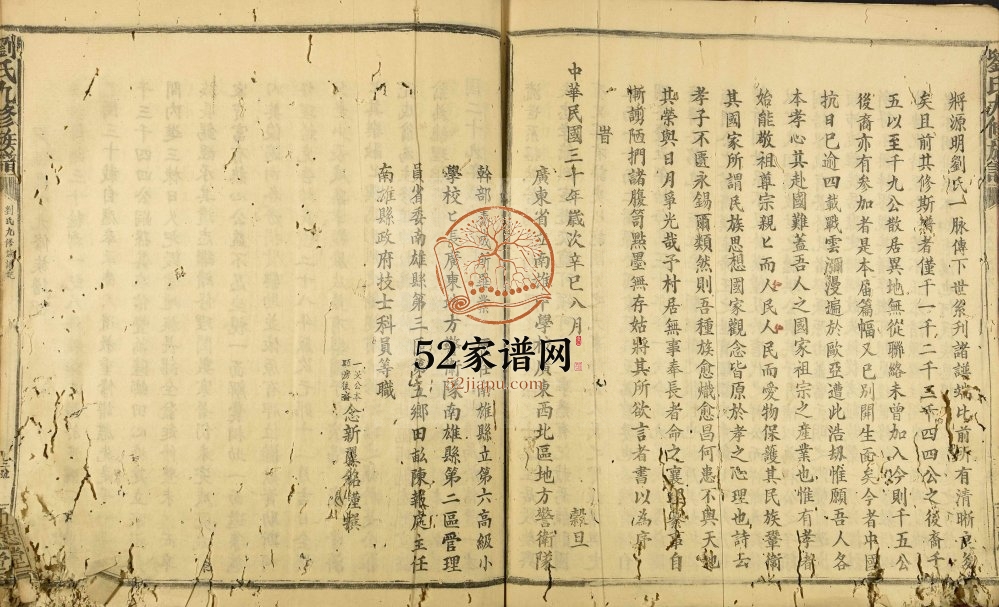 將源明劉氏一脈傳下世系刋諸譜端比前所有清晰良多
矣且前其修斯譜者僅千一千二千三千四四公之後裔千
五以至千九公散居異地無從聯絡未曾加入今則千五公
後裔亦有參加者是本届篇幅又已別開生面矣今者中國
抗日巳逾四載戰雲瀰漫遍於歐亞遭此浩刼惟願吾人各
本孝心其赴國難蓋吾人之國家祖宗之產業也惟有孝者
始能敬祖尊宗親匕而人民人民而愛物保護其民族鞏衛
其國家所謂民族思想國家觀念皆原於孝之心理也詩云
孝子不匱永錫爾類然則吾種族愈熾愈昌何患不與天地
其榮與日月章光哉予村居無事奉長者命之襄事自
慚謭陋捫諸腹笥點墨無存姑將其所欲言者書以為序
旹
中華民國三十年歲次辛巳八月 穀旦
廣東省立南雄中學 廣東西北區地方警衛隊
幹部 所畢業 任南雄縣立第六高級小
學校匕長廣東 方警衛隊南雄縣第二區管理
員省委南雄縣第三區第五鄉田畝陳報處主任
南雄縣政府技士科員等職
念新 謹撰
劉氏九修族譜
52家谱网
52jiapu.com